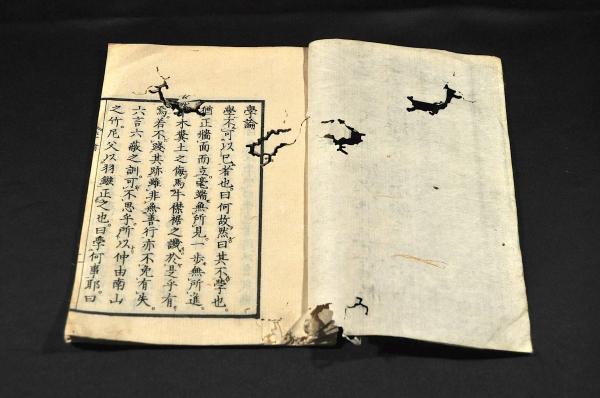 學論
學不可以已者也曰何故然曰其不學也
猶正牆面而立毫端無所見一步無所進
木糞土之侮馬牛襟裾之譏於是乎有
焉若不踐其跡雖非無善行亦不免有失
六言六蔽之訓可不思乎所以仲由南山
之竹尼父以羽鏃正之也曰學何事耶曰